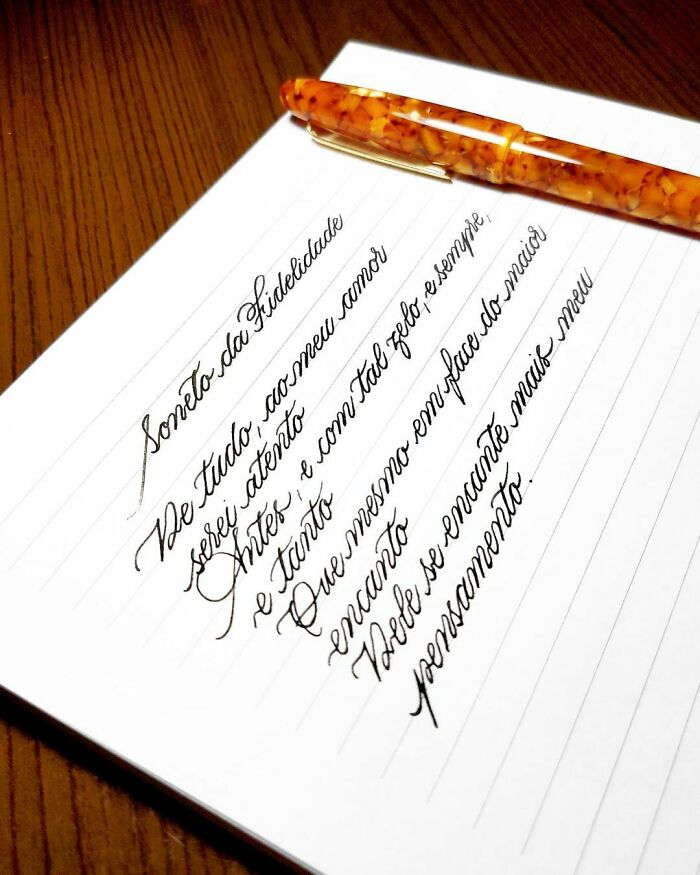 Soneto da Fidelidade
De tudo, ao meu amor
serei atento
Antes, e com tal zelo, e sempre,
e tanto
Que mesmo em face do maior
encanto
Dele se encante mais meu
pensamento.